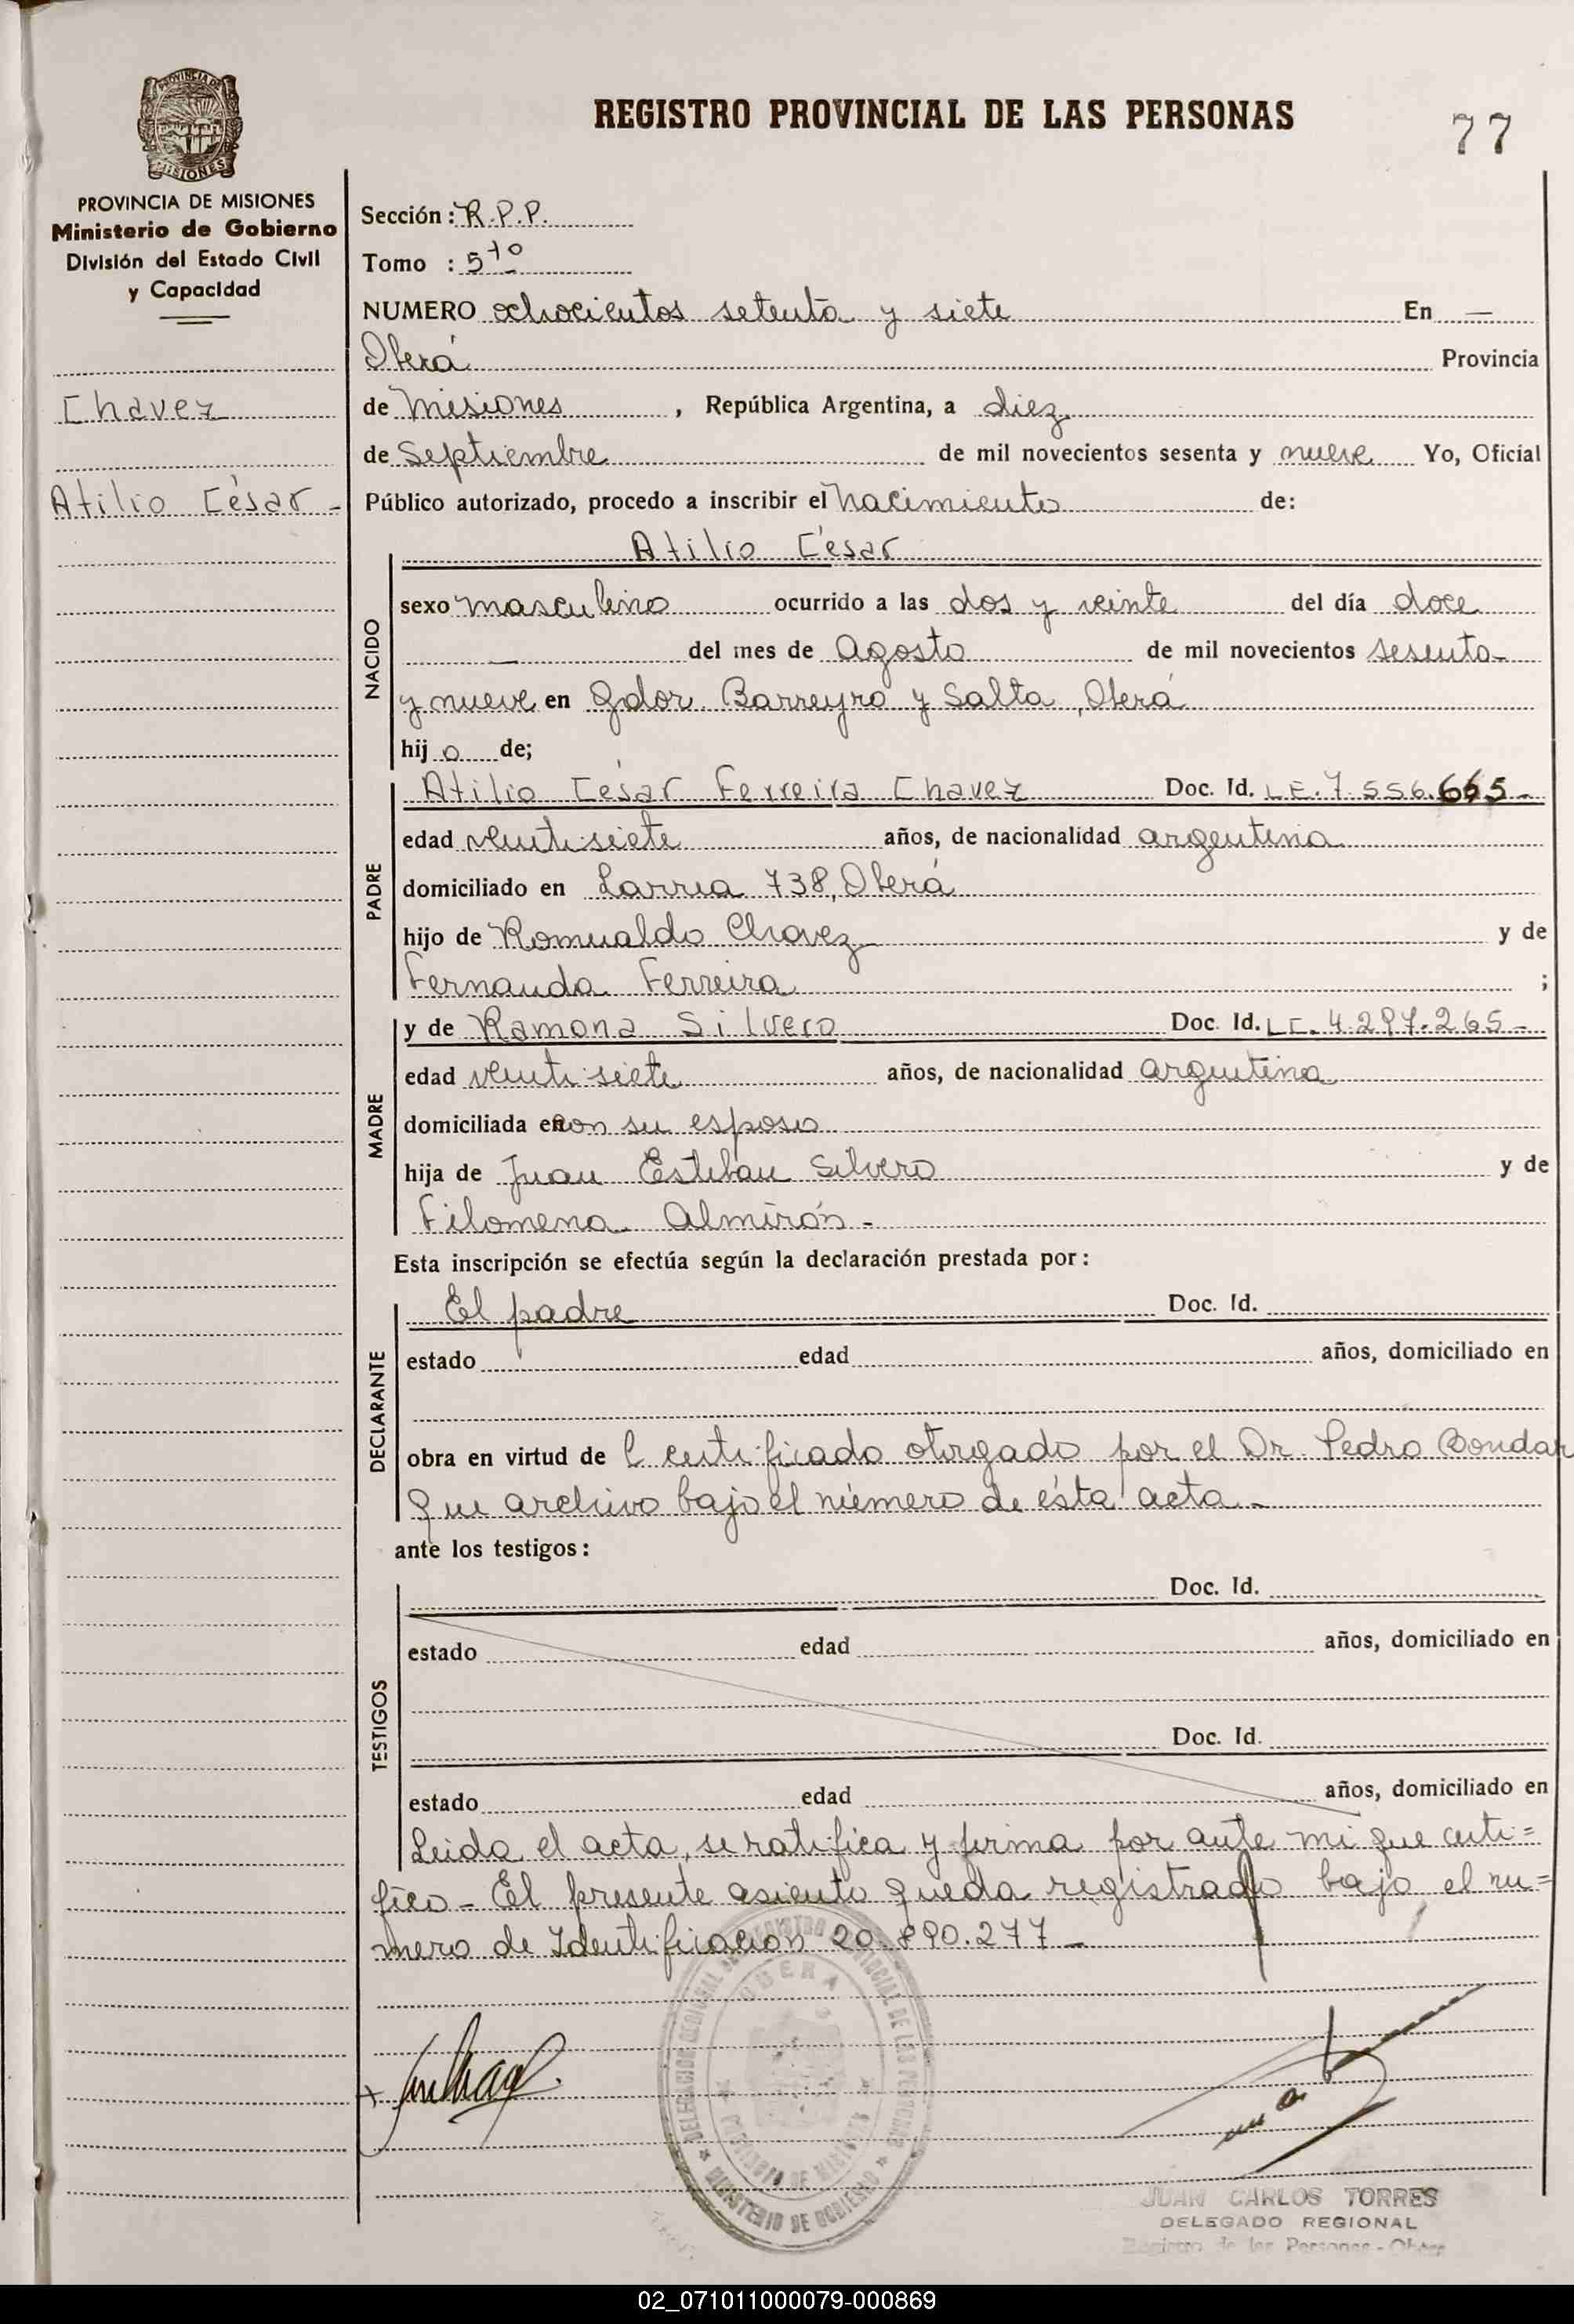 REGISTRO PROVINCIAL DE LAS PERSONAS
77
PROVINCIA DE MISIONES
MISIONES
PROVINCIA DE MISIONES
Ministerio de Gobierno
División del Estado Civil
y Capacidad
Chavez
Atilio César -
Sección : R.P.P.
Tomo : 5to
NUMERO ochocientos setenta y siete En —
Oberá Provincia
de Misiones , República Argentina, a diez
de Septiembre de mil novecientos sesenta y nueve Yo, Oficial
Público autorizado, procedo a inscribir el nacimiento de:
Atilio César
NACIDO
sexo masculino ocurrido a las dos y veinte del día doce
— del mes de Agosto de mil novecientos sesenta
y nueve en Gdor. Barreyro y Salta, Oberá
hij o de;
PADRE
Atilio César Ferreira Chavez Doc. Id. L.E. 7.556.665 -
edad veintisiete años, de nacionalidad argentina
domiciliado en Larrea 738, Oberá
hijo de Romualdo Chavez y de
Fernanda Ferreira ;
MADRE
y de Ramona Silvero Doc. Id. L.C. 4.297.265 -
edad veinti siete años, de nacionalidad argentina
domiciliada con su esposo
hija de Juan Esteban Silvero y de
Filomena Almirón -
Esta inscripción se efectúa según la declaración prestada por:
DECLARANTE
El padre Doc. Id.
estado edad años, domiciliado en
obra en virtud de l certificado otorgado por el Dr. Pedro Bondar
que archivo bajo el número de ésta acta -
ante los testigos:
TESTIGOS
Doc. Id.
estado edad años, domiciliado en
Doc. Id.
estado edad años, domiciliado en
Leida el acta, se ratifica y firma por ante mi que certi=
fico - El presente asiento queda registrado bajo el nu=
mero de Identificacion 20.890.277 -
DELEGACION REGIONAL DEL REGISTRO PROVINCIAL DE LAS PERSONAS
OBERA
PROVINCIA DE MISIONES
MINISTERIO DE GOBIERNO
JUAN CARLOS TORRES
DELEGADO REGIONAL
Registro de las Personas - Oberá
02_071011000079-000869